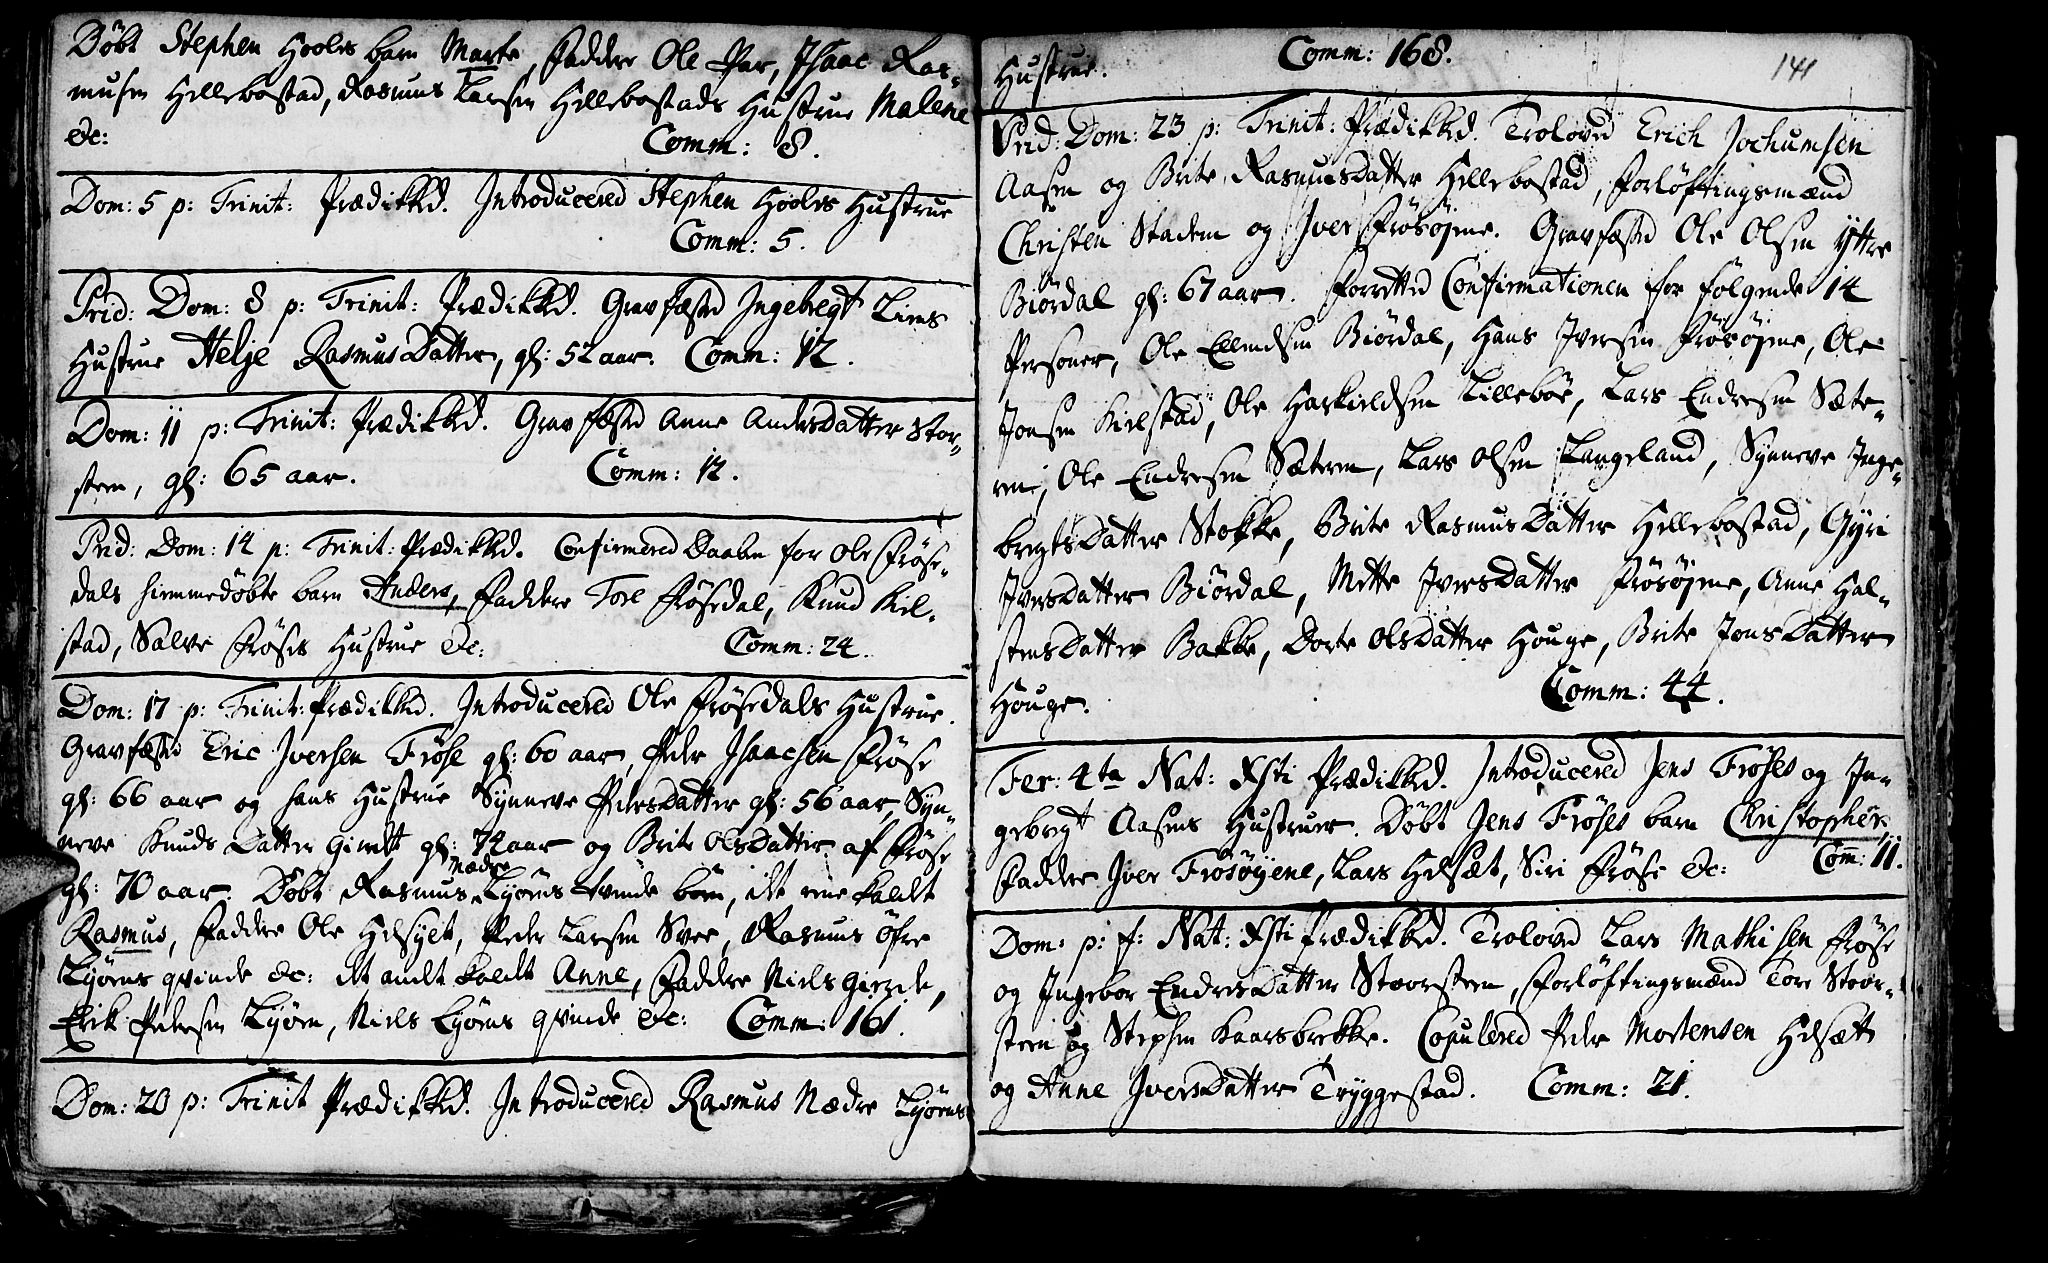 Döbt Stephen Hooles barn Marte, Faddere Ole Aar, Isaac Ras-
musen Hellebostad, Rasmus Larsen Hellebostads Hustrue Malene
etc: Comm: 8.
Dom: 5 p: Trinit: Prædikked. Introducered Stephen Hooles Hustrue
Comm: 5.
Prid: Dom: 8 p: Trinit: Prædikked. Gravfæsted Ingebregt Liens
Hustrue Helje RasmusDatter, gl: 52 aar. Comm: 12.
Dom: 11 p: Trinit: Prædikked. Gravfæsted Anne AndersDatter Stor-
steen, gl: 65 aar. Comm: 12.
Prid: Dom: 14 p: Trinit: Prædikked. Confirmered Daaben for Ole Frøse-
dals hiemmedöbte barn Anders, Faddere Tore Frøsedal, Knud Kil-
stad, Salve Frøses Hustrue etc: Comm: 24.
Dom: 17 p: Trinit: Prædikked. Introducered Ole Frøsedals Hustrue.
Gravfæsted Eric Iversen Frøse gl: 60 aar, Peder Isaachsen Frøse
gl: 66 aar og hans Hustrue Synneve PedersDatter gl: 56 aar, Syn-
neve Knuds Datter Gierdt gl: 72 aar og Brite OlsDatter af Frøse
gl: 70 aar. Döbt Rasmus Nædre Lyöens tvinde börn, det eene kaldt
Rasmus, Faddere Ole Helsyet, Peder Larsen Svee, Rasmus öfre
Lyöens qvinde etc: det andet kaldt Anne, Faddere Niels Gierde,
Erik Pedersen Lyöen, Niels Lyöens qvinde etc: Comm: 161.
Dom: 20 p: Trinit Prædikked. Introducered Rasmus Nædre Lyöens
Hustrue. Comm: 168. 141
Prid: Dom: 23 p: Trinit: Prædikked. Troloved Erich Jochumsen
Aasen og Brite RasmusDatter Hellebostad, Forløftingsmænd
Christen Stadem og Iver Frösöjene. Gravfæsted Ole Olsen Yttre
Biördal gl: 67 aar. Forretted Confirmationen for fölgende 14
Personer, Ole Ellendsen Biördal, Hans Iversen Frösöjene, Ole
Jonsen Kielstad, Ole Haskieldsen Lilleböe, Lars Endresen Sæte-
ren, Ole Endresen Sæteren, Lars Olsen Langeland, Synneve Inge-
bregtsDatter Stokke, Brite RasmusDatter Hellebostad, Gyri
IversDatter Biördal, Mette IversDatter Frösöjene, Anne Hal-
stensDatter Bakke, Dorte OlsDatter Houge, Brite JonsDatter
Houge. Comm: 44.
Fer: 4ta Nat: Xsti Prædikked. Introducered Jens Fröses og In-
gebregt Aasens Hustruer. Döbt Jens Fröses barn Christopher,
Faddere Iver Frösöyene, Lars Helsæt, Siri Fröse etc: Com: 11.
Dom: p: f: Nat: Xsti Prædikked. Troloved Lars Mathisen Fröse
og Ingebor EndresDatter Stoorsteen, Forlöftingsmænd Tore Stoor-
steen og Stephen Kaarsbrekke. Copulered Peder Mortensen Helsæt
og Anne IversDatter Tryggestad. Comm: 21.